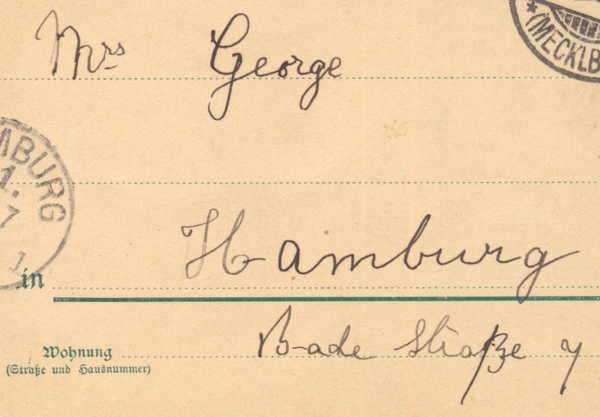 Mrs George
* (MECKLB
MBURG
1.
7
1
Hamburg
in
Bade Straße 7
Wohnung
(Straße und Hausnummer)